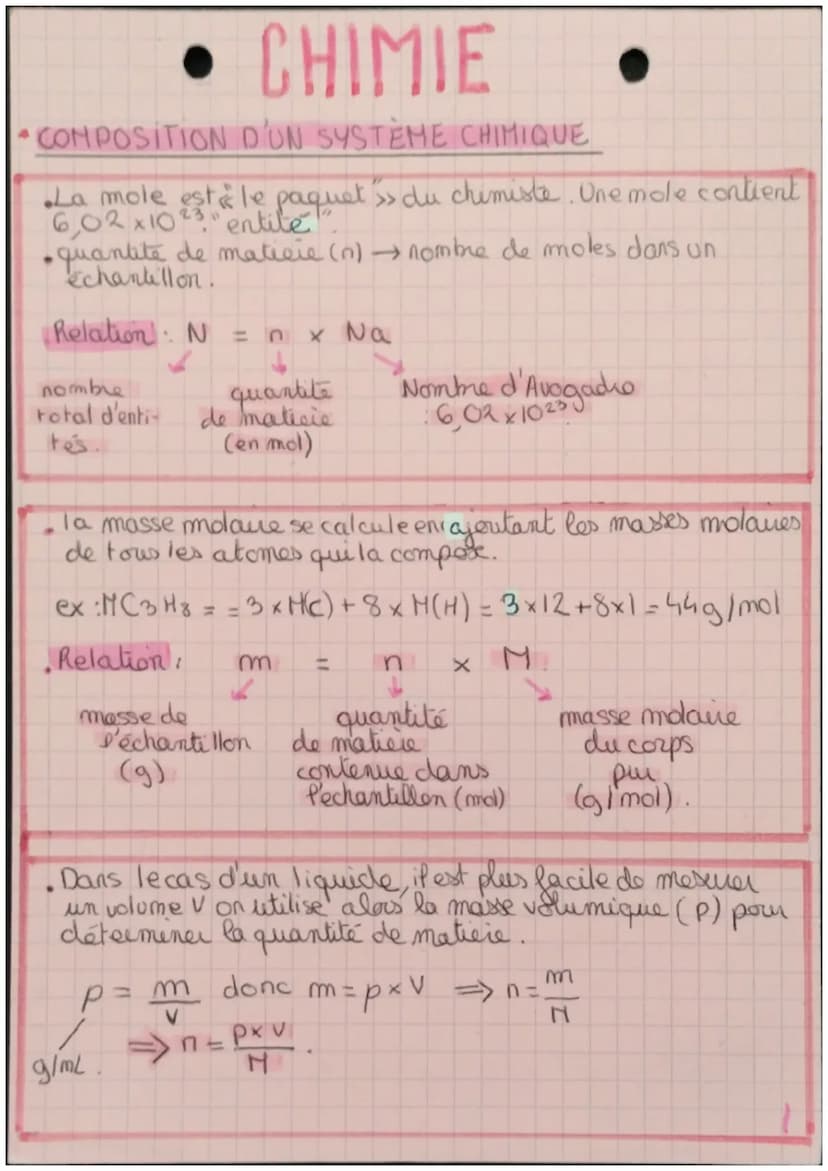 CHIMIE
• COMPOSITION D'UN SYSTÈME CHIMIQUE
• La mole est « le paquet » du chimiste. Une mole contient
6,02 x 10²³ "entité".
• quantité de matière (n) → nombre de moles dans un
échantillon.
Relation : N = n x Na
nombre total d'enti-tés.
quantité de matière (en mol)
Nombre d'Avogadro : 6,02 x 10²³
• la masse molaire se calcule en ajoutant les masses molaires
de tous les atomes qui la compose.
ex : MC3H8 = = 3 x M(C) + 8 x M(H) = 3 x 12 + 8 x 1 = 44g/mol
• Relation : m = n x M
masse de l'échantillon (g)
quantité de matière contenue dans l'echantillon (mol)
masse molaire du corps pur (g/mol).
• Dans le cas d'un liquide, il est plus facile de mesurer
un volume V on utilise alors la masse volumique (ρ) pour
déterminer la quantité de matière.
ρ = m/V donc m = ρ x V ⇒ n = m/M
⇒ n = ρ x V/M .
g/mL.
1